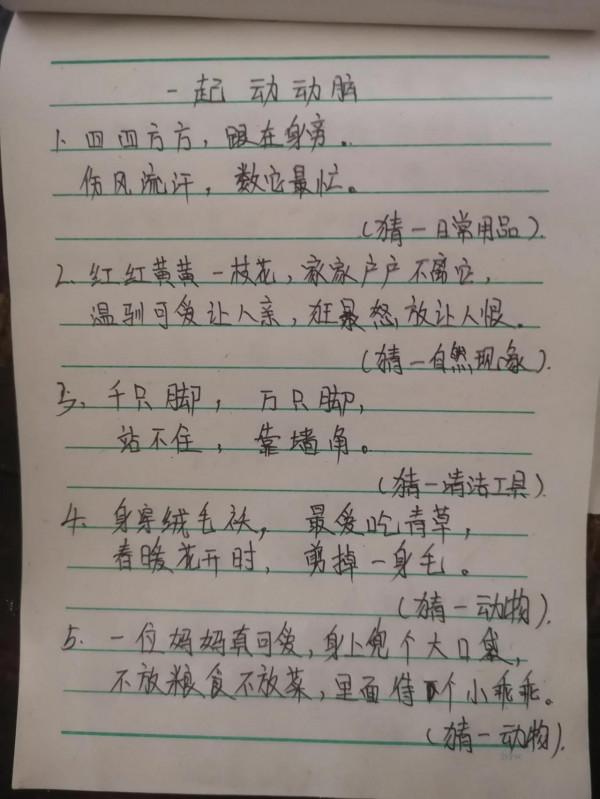 一起动动脑
1. 四四方方，跟在身旁。
伤风流汗，数它最忙。
(猜一日常用品).
2. 红红黄黄一枝花，家家户户不离它，
温驯可爱让人亲，狂暴怒放让人恨。
(猜一自然现象).
3. 千只脚，万只脚，
站不住，靠墙角。
(猜一清洁工具).
4. 身穿绒毛袄，最爱吃青草，
春暖花开时，剪掉一身毛。
(猜一动物).
5. 一位妈妈真可爱，身上兜个大口袋，
不放粮食不放菜，里面待个小乖乖。
(猜一动物).